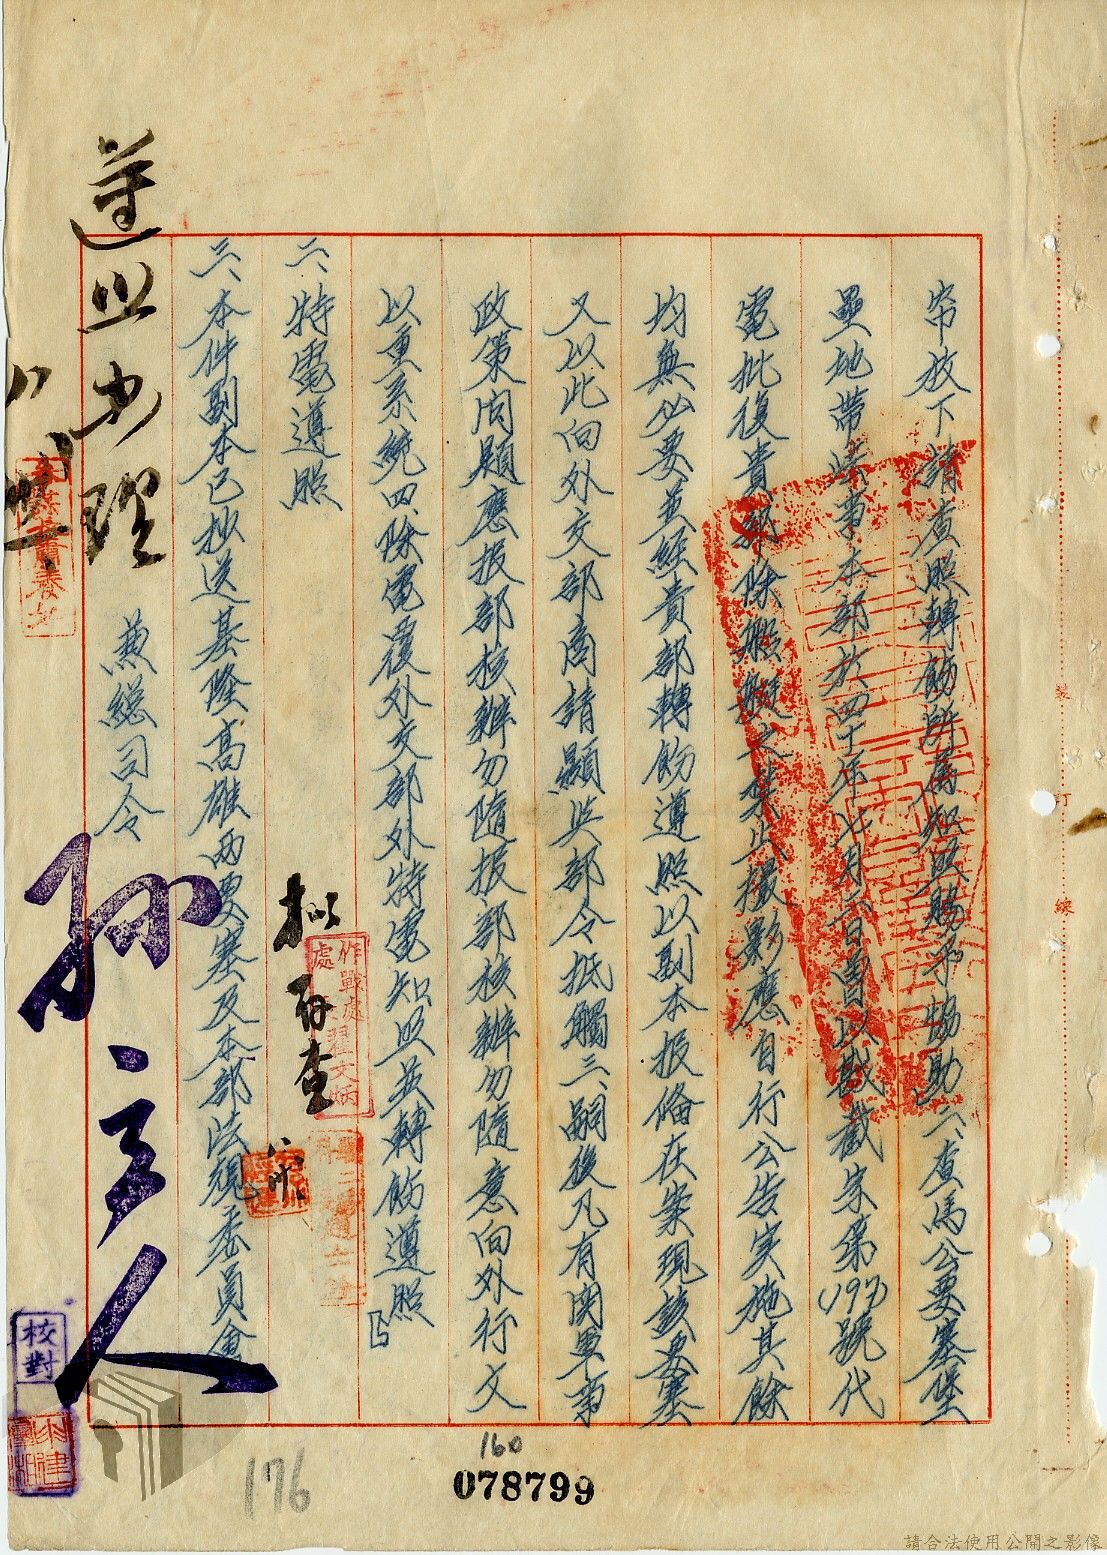 帘放下請查照轉飭所屬知照賜予協助二、查馬公要塞堡
壘地帶案事本部於四十年七月 以戰截字第(197)號代
電批復貴部除艦艇之禁止攝影應自行公告实施其餘
均無必要並經貴部轉飭遵照以副本报備在案現該要塞
又以此向外交部商請顯与部令抵觸三、嗣後凡有関軍事
政策问題應报部核辦勿隨报部核辦勿隨意向外行文
以重系統四除電復外交部外特電知照並轉飭遵照』
二、特電遵照
三、本件副本已拟送基隆高雄两要塞及本部法規委員會
兼總司令
孫立人
遵照办理
拟存查
作戰處
處
校對
160
078799
176
裝訂線
請合法使用公開之影像